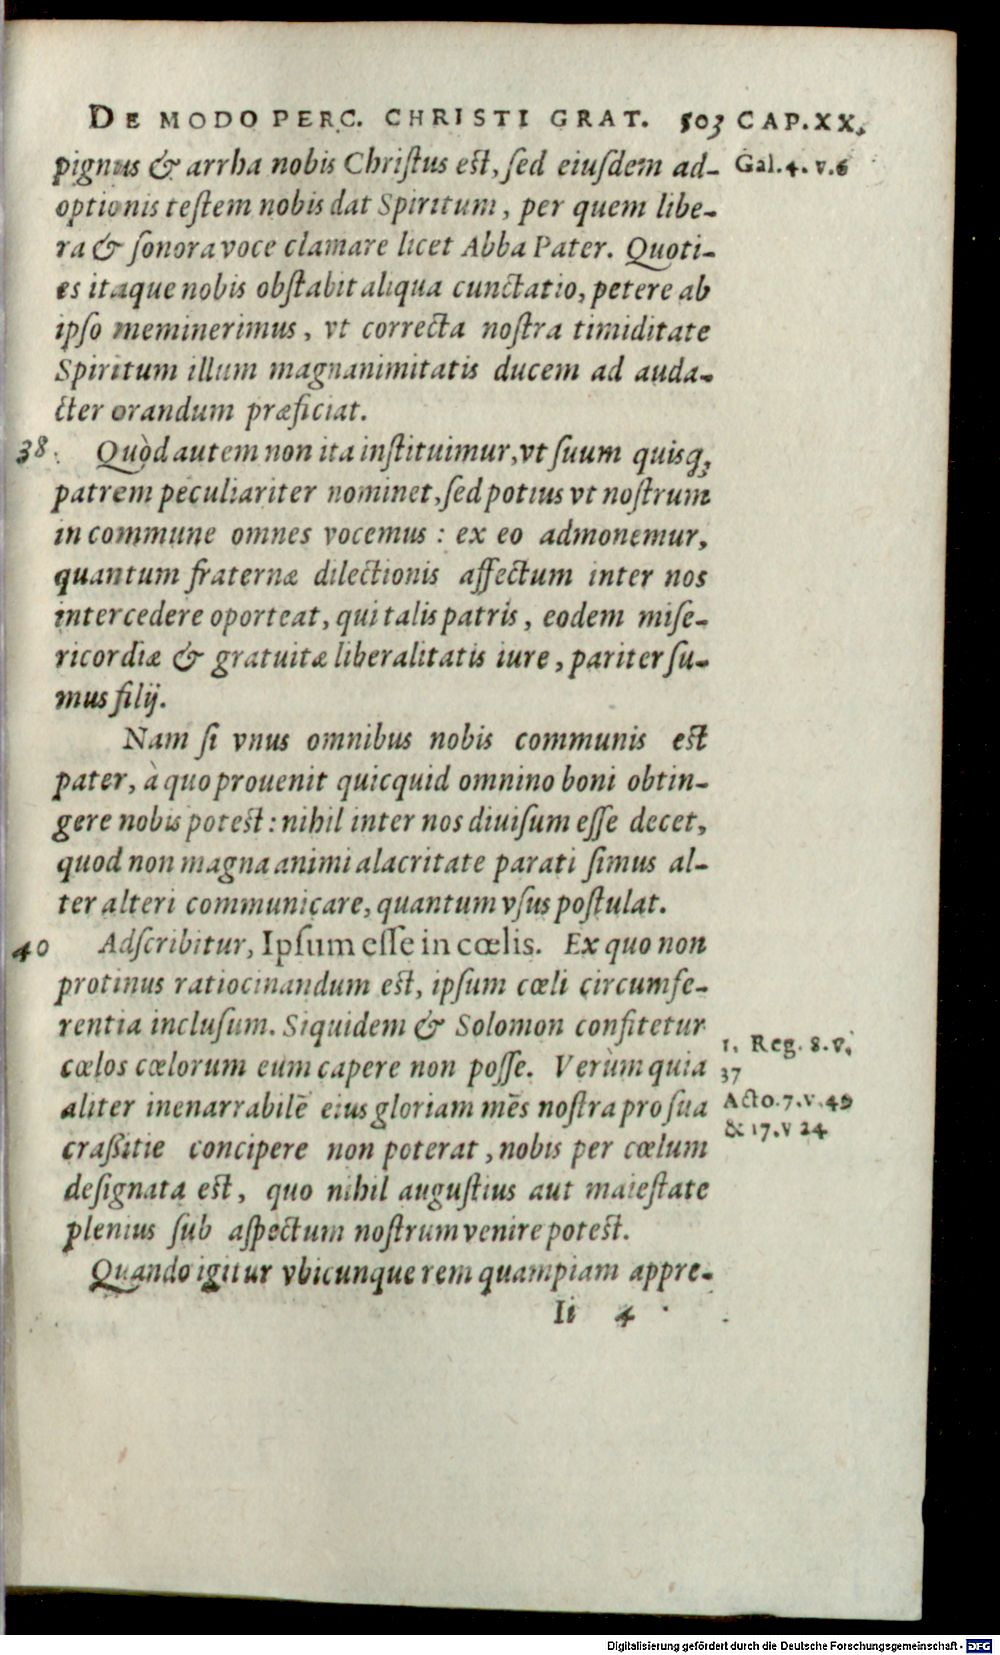 DE MODO PERC. CHRISTI GRAT. 503 CAP.XX.
pignus & arrha nobis Christus est, sed eiusdem ad- Gal.4.v.6
optionis testem nobis dat Spiritum, per quem libe-
ra & sonora voce clamare licet Abba Pater. Quoti-
es itaque nobis obstabit aliqua cunctatio, petere ab
ipso meminerimus, vt correcta nostra timiditate
Spiritum illum magnanimitatis ducem ad auda-
cter orandum præficiat.
38. Quòd autem non ita instituimur, vt suum quisq;
patrem peculiariter nominet, sed potius vt nostrum
in commune omnes vocemus : ex eo admonemur,
quantum fraternæ dilectionis affectum inter nos
intercedere oporteat, qui talis patris, eodem mise-
ricordiæ & gratuitæ liberalitatis iure, pariter su-
mus filij.
Nam si vnus omnibus nobis communis est
pater, à quo prouenit quicquid omnino boni obtin-
gere nobis potest : nihil inter nos diuisum esse decet,
quod non magna animi alacritate parati simus al-
ter alteri communicare, quantum vsus postulat.
40 Adscribitur, Ipsum esse in cœlis. Ex quo non
protinus ratiocinandum est, ipsum cœli circumfe-
rentia inclusum. Siquidem & Solomon confitetur
cœlos cœlorum eum capere non posse. Verùm quia
1. Reg. 8.v.
37
aliter inenarrabilē eius gloriam mēs nostra pro sua
Acto.7.v.49
& 17.v 24
crassitie concipere non poterat, nobis per cœlum
designata est, quo nihil augustius aut maiestate
plenius sub aspectum nostrum venire potest.
Quando igitur vbicunque rem quampiam appre-
Ii 4
Digitalisierung gefördert durch die Deutsche Forschungsgemeinschaft - DFG